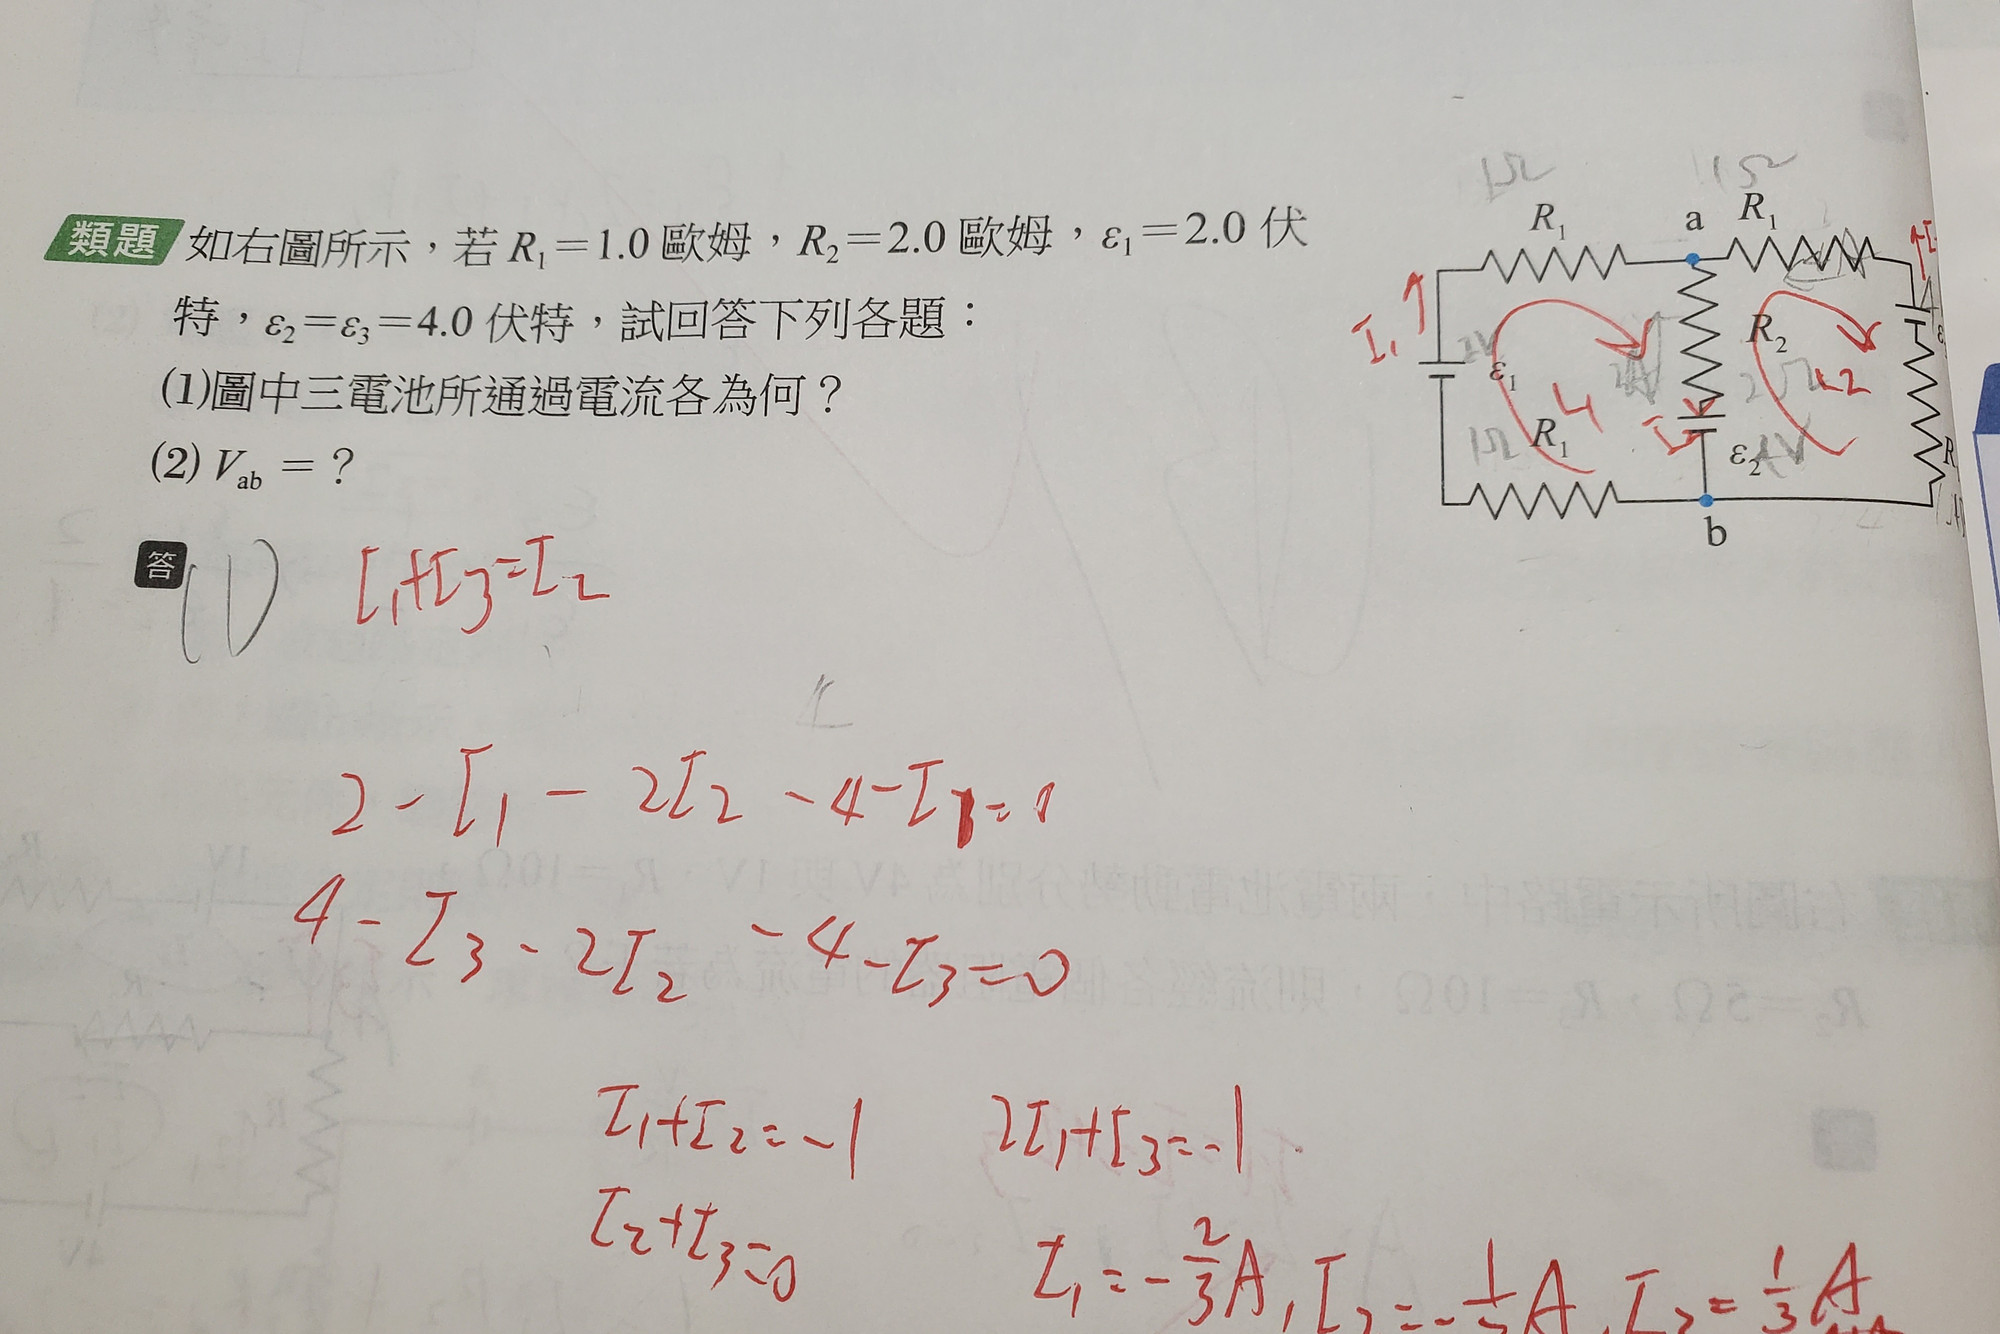 類題 如右圖所示，若 R₁＝1.0 歐姆，R₂＝2.0 歐姆，ε₁＝2.0 伏
特，ε₂＝ε₃＝4.0 伏特，試回答下列各題：
(1)圖中三電池所通過電流各為何？
(2) Vab ＝？
1Ω
1Ω
R₁
a
R₁
I₁
2V
ε₁
R₂
2Ω
L2
L1
1Ω
R₁
ε₂
4V
R
b
答
(1) I₁+I₃=I₂
2-I₁-2I₂-4-I₁=0
4-I₃-2I₂-4-I₃=0
I₁+I₂=-1 2I₁+I₃=-1
I₂+I₃=0
I₁=-2/3A, I₂=-1/3A, I₃=1/3A